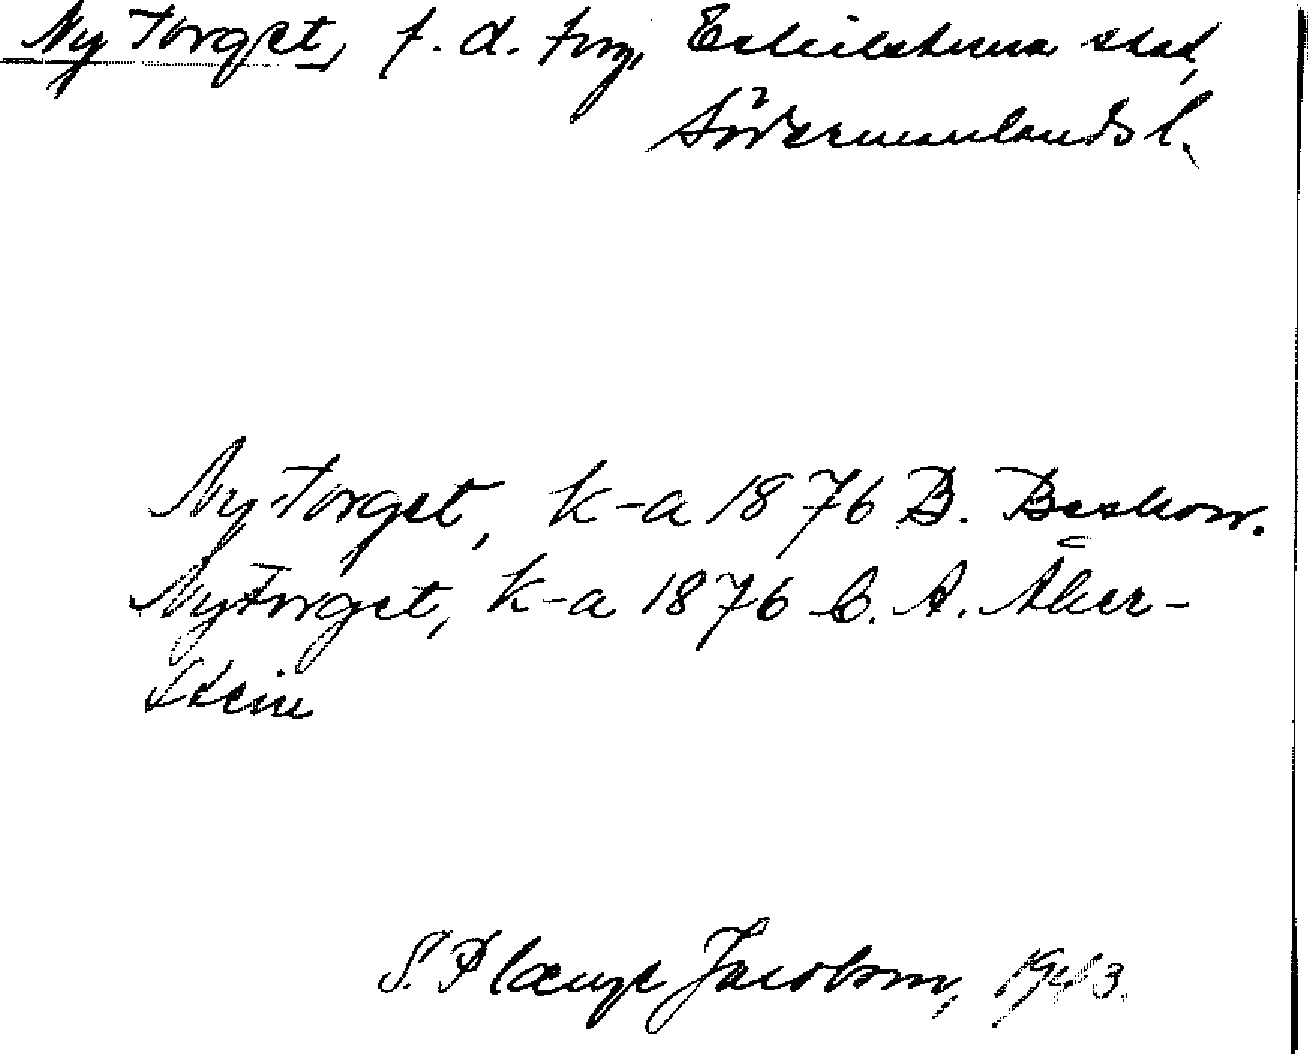 Ny Torget, f. d. torg, Eskilstuna stad,
Södermanlands l.
Ny Torget, k-a 1876 B. Beskow.
Ny Torget, k-a 1876 C. A. Åker-
stein
S. Jacobson, 1943.